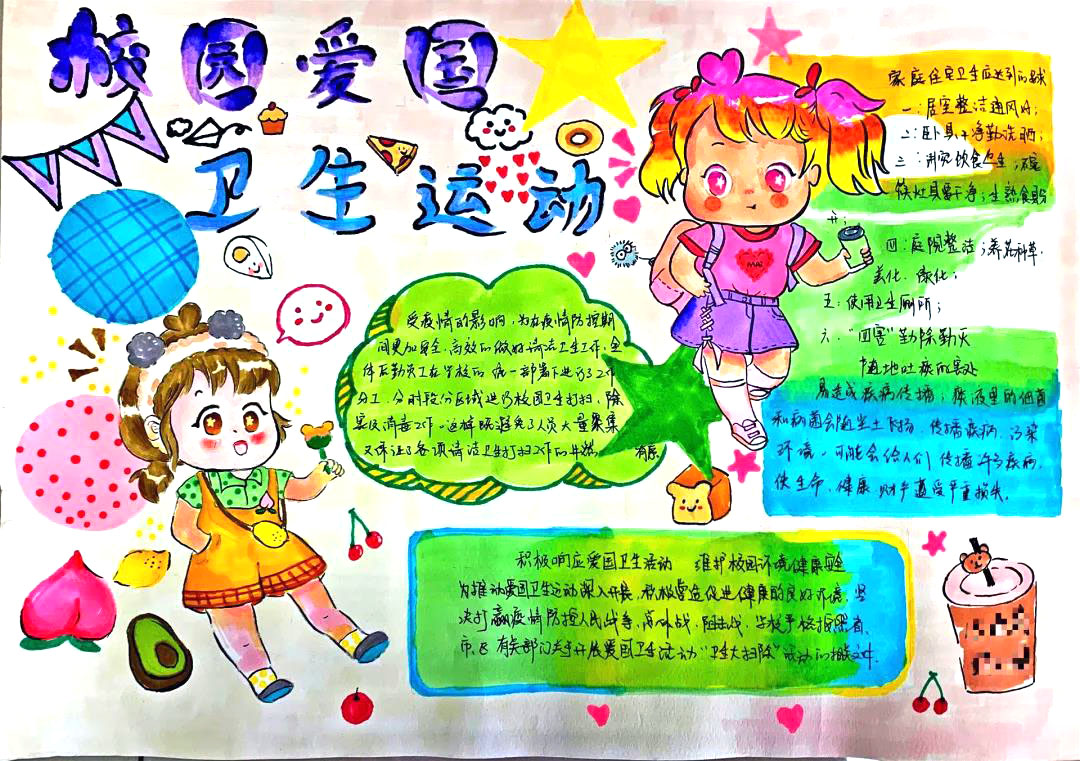 校园爱国
卫生运动
家庭住宅卫生应达到的
一:居室整洁通风好;
二:卧具干净勤洗晒;
三:讲究饮食卫生;
筷灶具要干净;生熟食
四:庭院整洁;养花种草,
美化、绿化;
五:使用卫生厕所;
六:"四害"勤除勤灭
随地吐痰的害处
易造成疾病传播;痰液里的细菌
和病菌会随尘土飞扬,传播疾病,污染
环境,可能会给人们传播许多疾病,
使生命、健康、财产遭受严重损失。
受疫情的影响,为在疫情防控期
间更加安全,高效的做好清洁卫生工作,全
体后勤员工在学校的统一部署下进行了工作
分工,分时段分区域进行校园卫生打扫,除
害及消毒工作。这样既避免了人员大量聚集
又保证了各项清洁卫生打扫工作的开展 有序
MAI
积极响应爱国卫生活动 维护校园环境健康安全
为推动爱国卫生运动深入开展,积极营造促进健康的良好环境,坚
决打赢疫情防控人民战争,总体战,阻击战,学校严格按照省、
市、区有关部门关于开展爱国卫生活动"卫生大扫除"